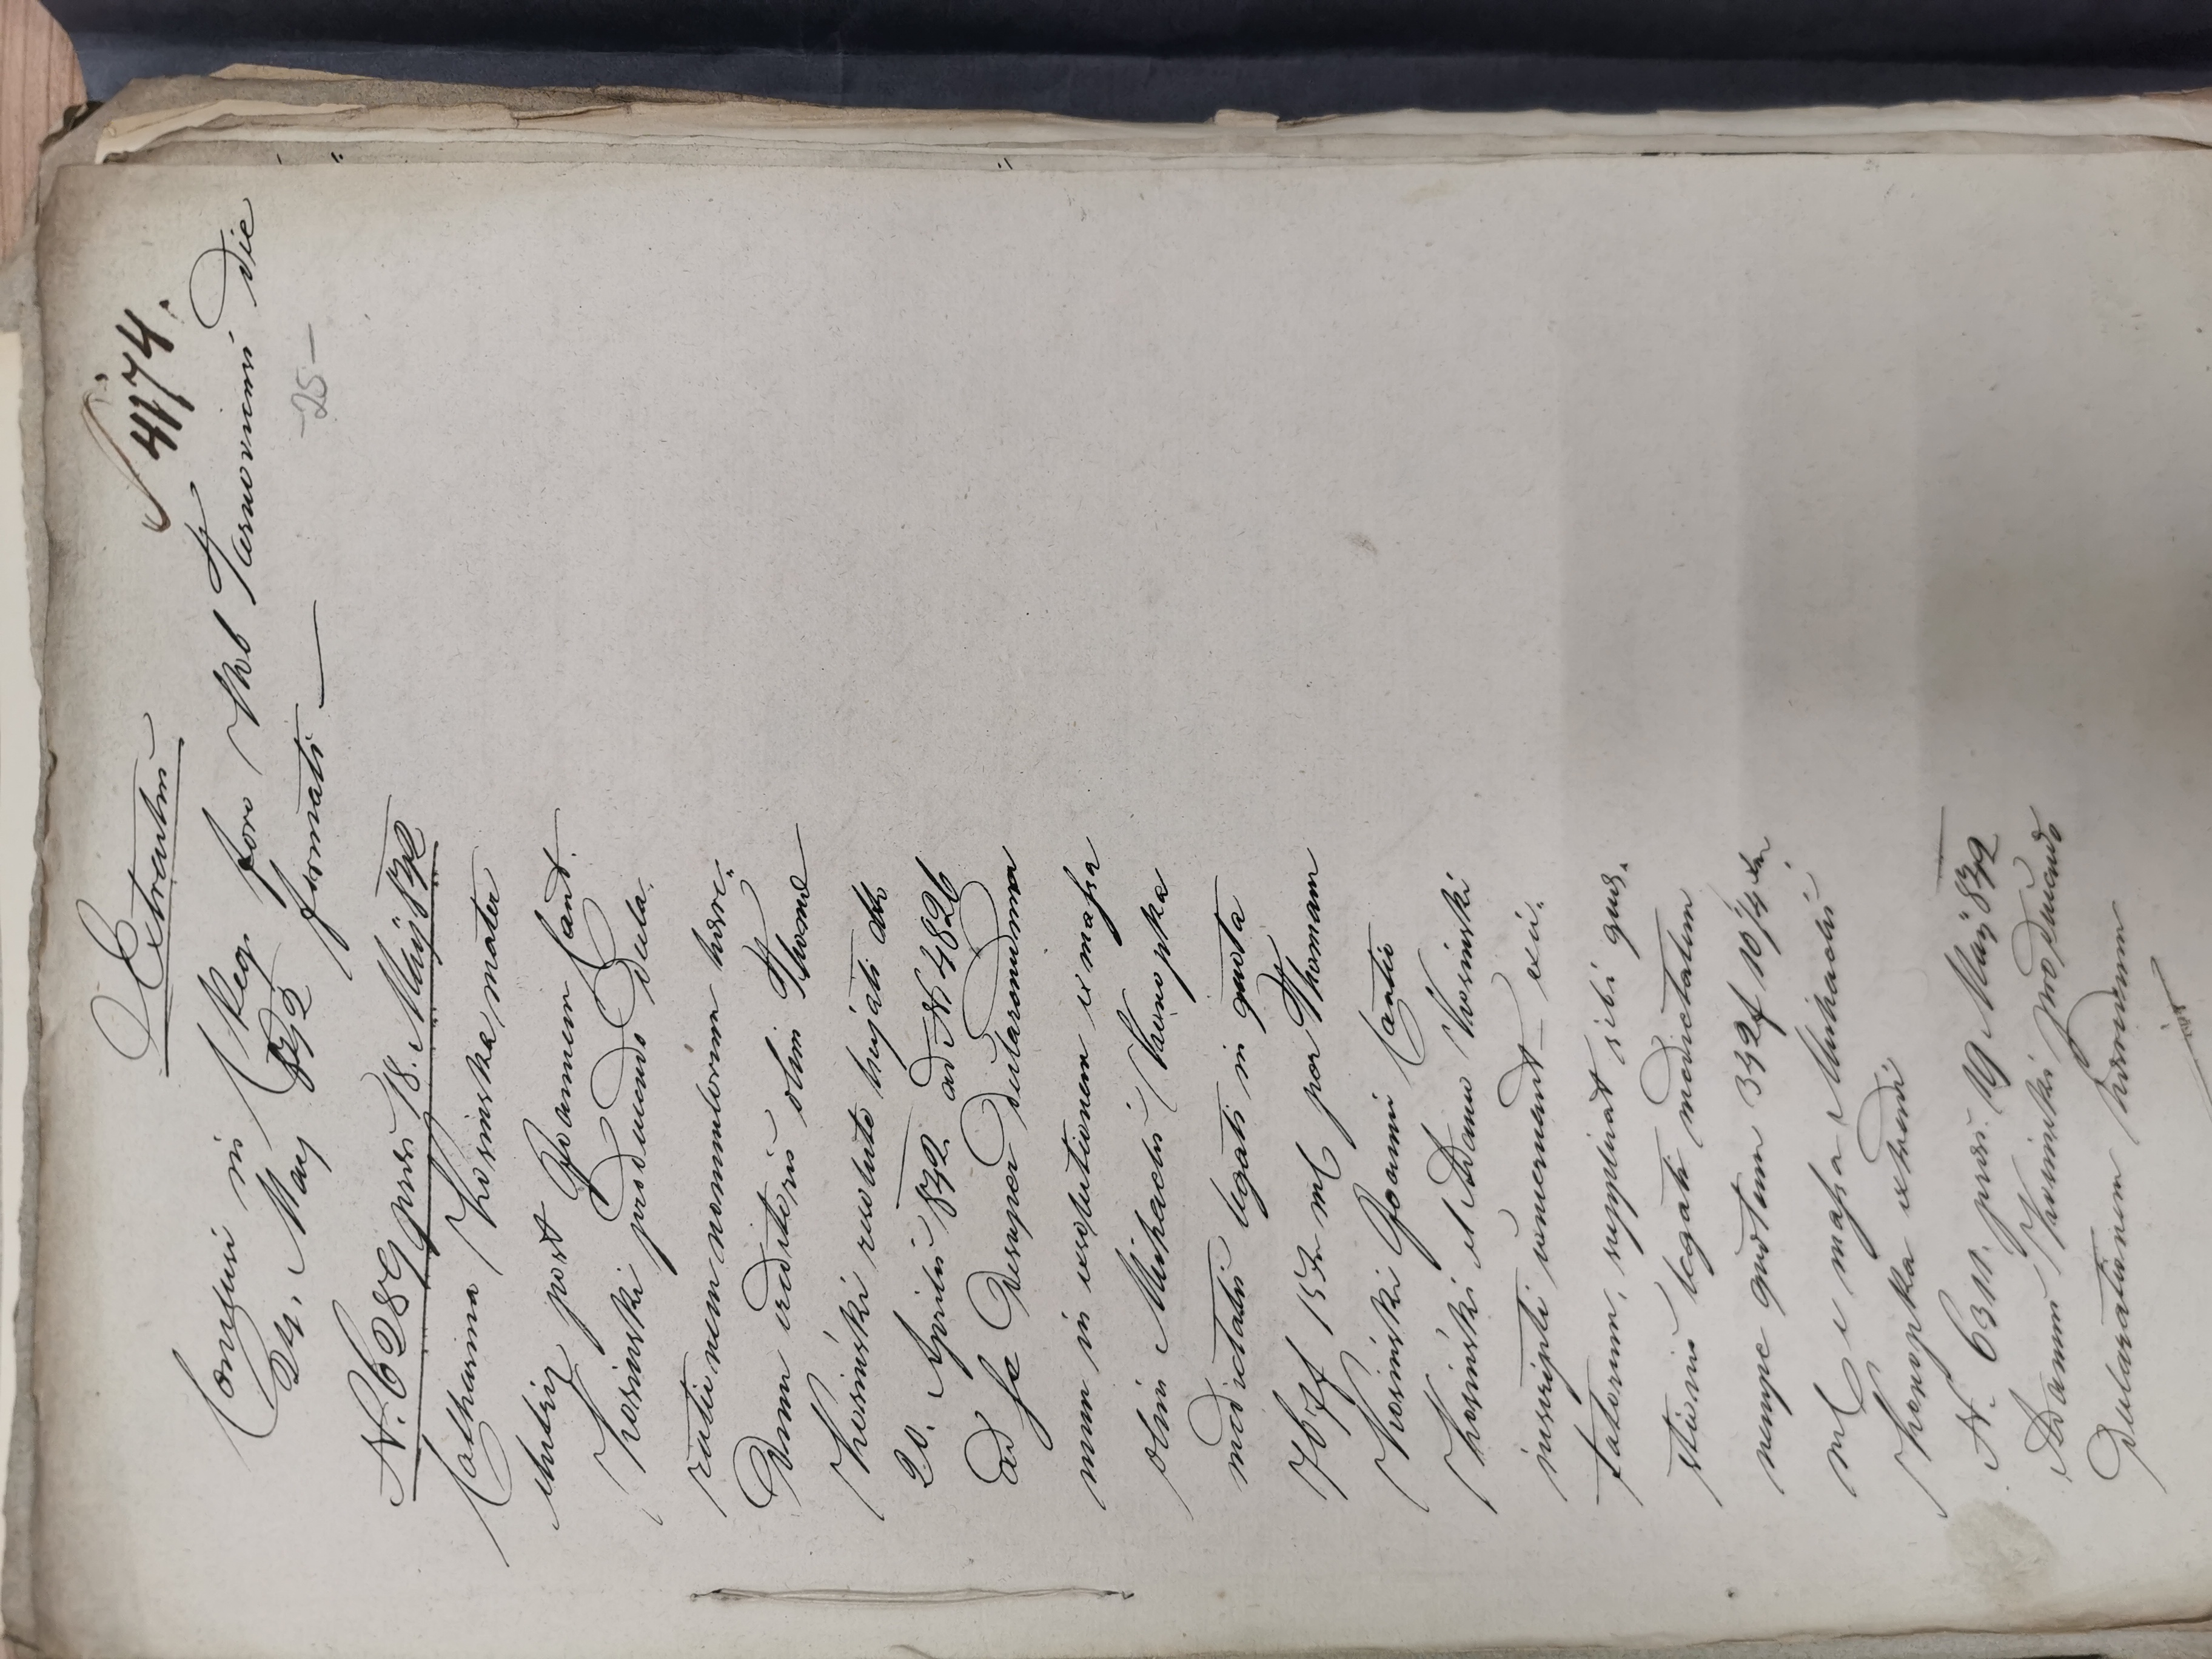 4174.
Extractus
Consessus in Reg. foro Nob Tarnoviensi die
24. May 842 formati
25
N. 6289 præs 18. Maij 842
Catharina Kosinska, mater
et tutrix post Joannem Cant.
Kosinski producendo Decla-
rationem nonnullorum hære-
dum creditoris olim Thomæ
Kosinski resoluto hujati dto
20. Aprilis 842 ad N 4826
ad se desuper declarandum
num in exolutionem e massa
olim Michaelis Konopka
medietatis legati in quota
767f 15 xr ml per Thomam
Kosiński Joanni Cantio
Kosiński et Adamo Kosinski
inscripti consentiant exci-
tatorum, supplicat sibi quæ-
stionis legati medietatem
nempe quotam 392f 10 1/4 xr
ml e massa Michaelis
Konopka extradi
N. 6311. præs. 19 Maij 842
Adamus Kosinski producendo
Declarationem hæredum